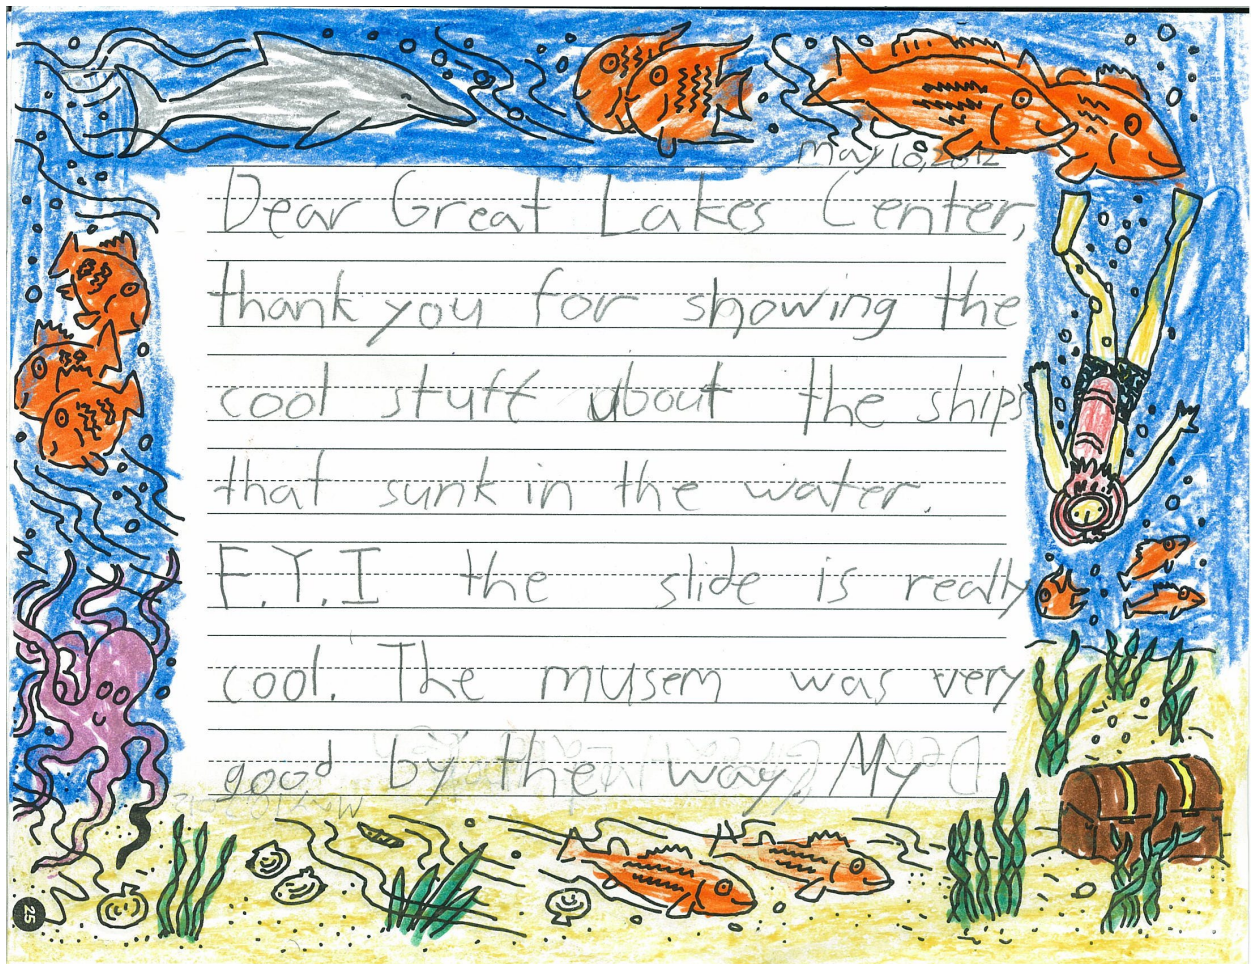 May 10, 2012
Dear Great Lakes Center,
thank you for showing the
cool stuff about the ships
that sunk in the water.
F.Y.I the slide is really
cool. The musem was very
good by the way, My
25